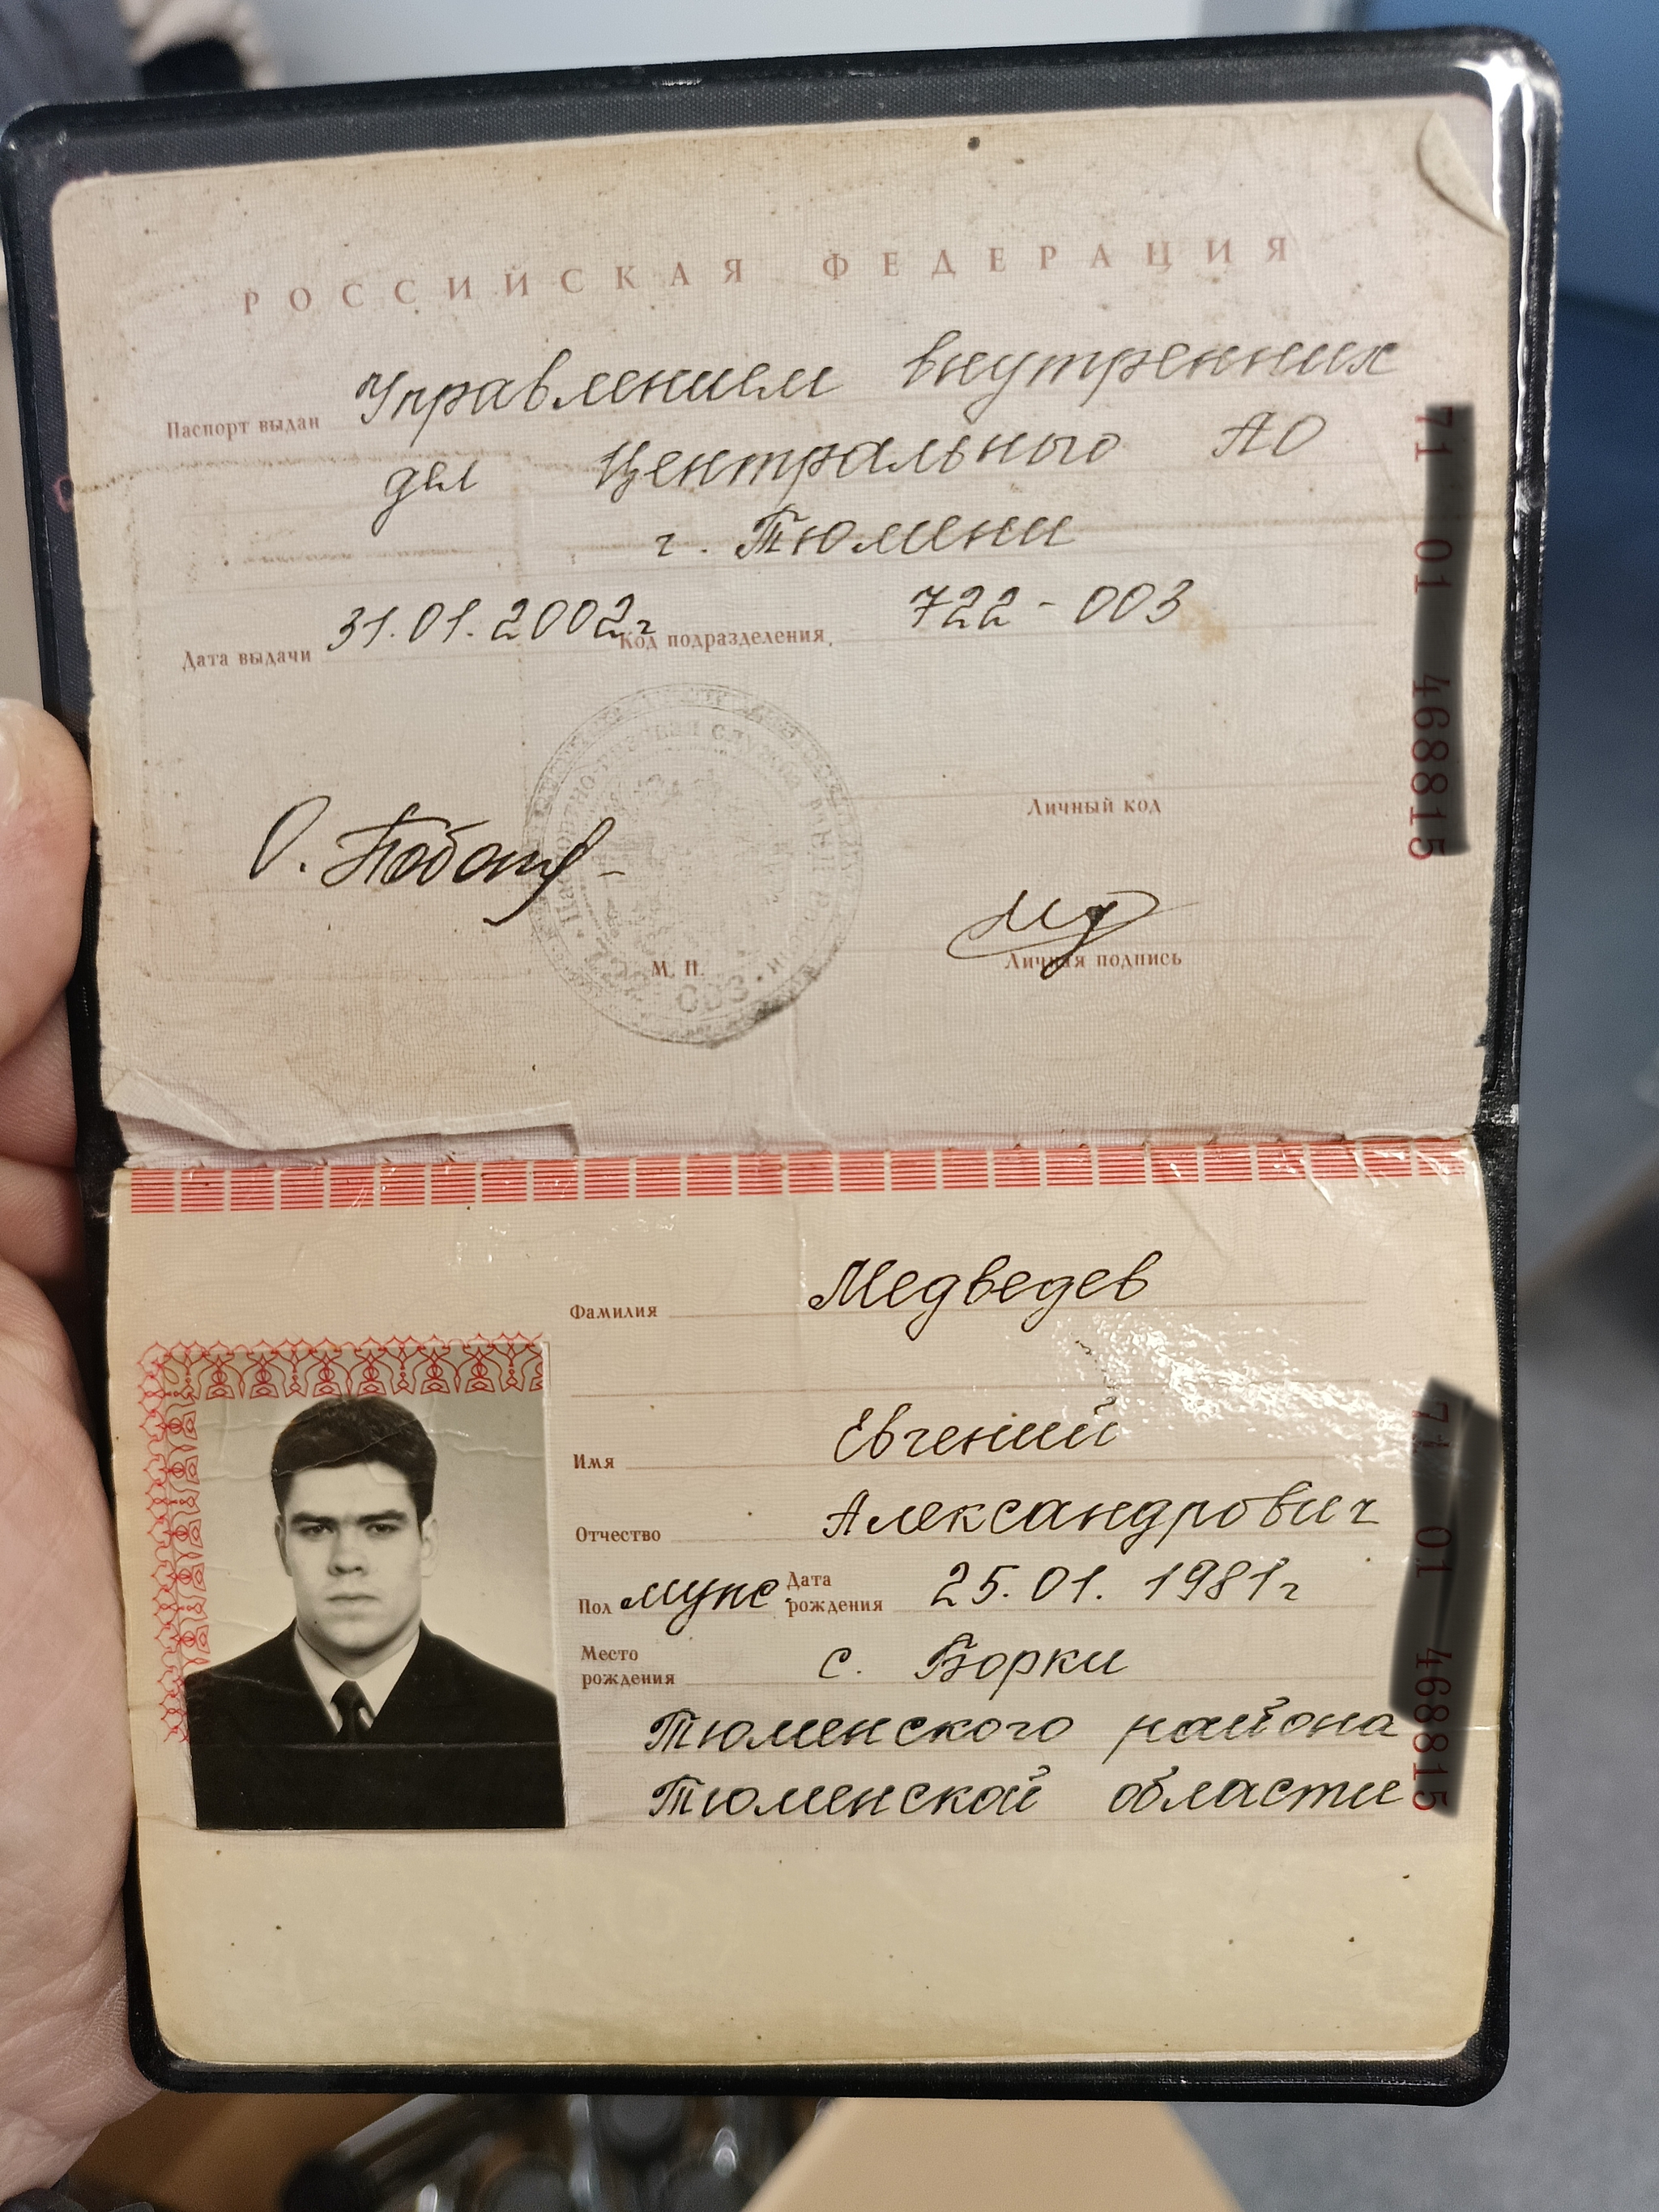 РОССИЙСКАЯ ФЕДЕРАЦИЯ
Паспорт выдан Управлением внутренних
дел Центрального АО
г. Тюмени
Дата выдачи 31.01.2002г Код подразделения 722-003
Личный код
М. П.
Личная подпись
Фамилия Медведев
Имя Евгений
Отчество Александрович
Пол муж. Дата рождения 25.01.1981г
Место рождения с. Борки
Тюменского района
Тюменской области